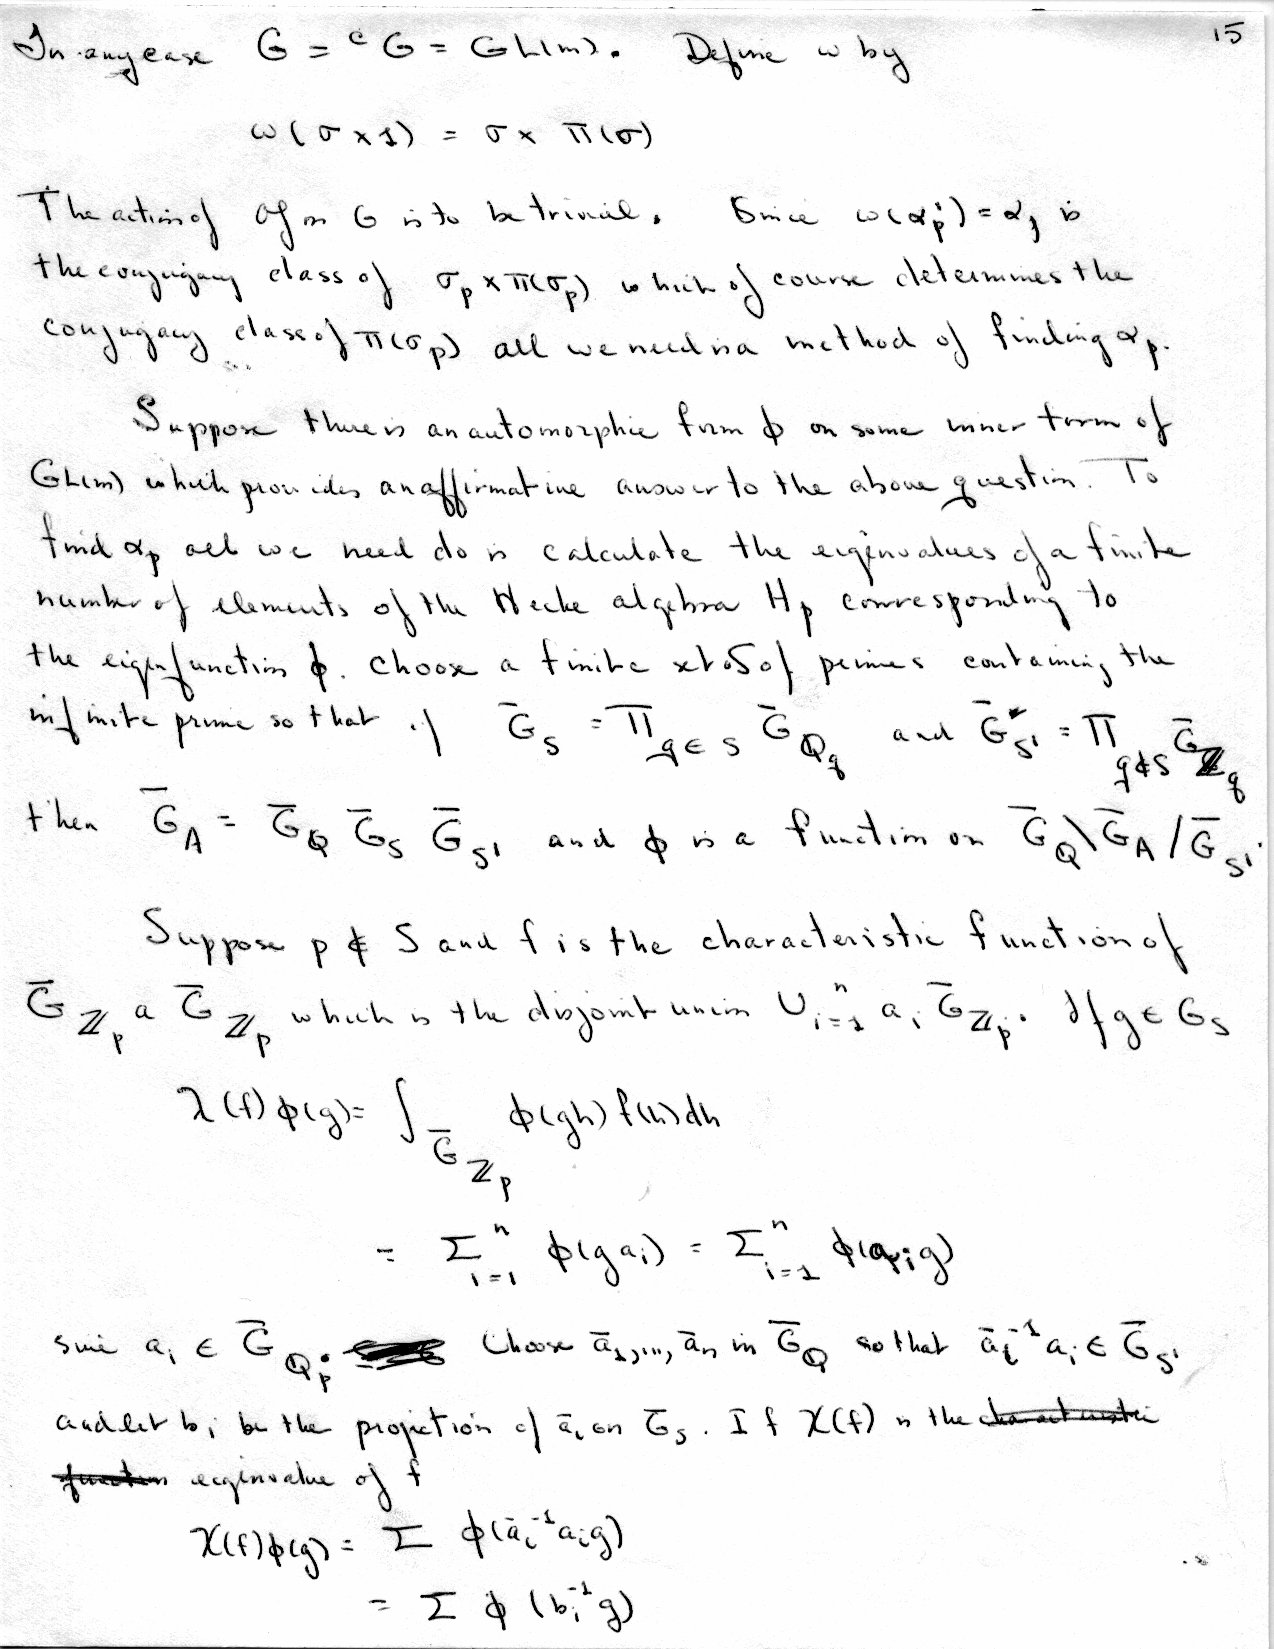 15
In any case G = ᶜG = GL(m). Define ω by
ω(σ × 1) = σ × π(σ)
The action of 𝔊 on G is to be trivial. Since ω(α'_p) = α_p is
the conjugacy class of σ_p × π(σ_p) which of course determines the
conjugacy class of π(σ_p) all we need is a method of finding α_p.
Suppose there is an automorphic form ϕ on some inner form of
GL(m) which provides an affirmative answer to the above question. To
find α_p all we need do is calculate the eigenvalues of a finite
number of elements of the Hecke algebra H_p corresponding to
the eigenfunction ϕ. Choose a finite set S of primes containing the
infinite prime so that if Ḡ_S = Π_{q∈S} Ḡ_{Q_q} and Ḡ_{S'} = Π_{q∉S} Ḡ_{ℤ_q}
then Ḡ_A = Ḡ_Q Ḡ_S Ḡ_{S'} and ϕ is a function on Ḡ_Q\Ḡ_A/Ḡ_{S'}.
Suppose p ∉ S and f is the characteristic function of
Ḡ_{ℤ_p} a Ḡ_{ℤ_p} which is the disjoint union ∪_{i=1}^n a_i Ḡ_{ℤ_p}. If g ∈ G_S
λ(f)ϕ(g) = ∫_{Ḡ_{ℤ_p}} ϕ(gh) f(h) dh
= Σ_{i=1}^n ϕ(g a_i) = Σ_{i=1}^n ϕ(a_i g)
since a_i ∈ Ḡ_{Q_p}. Choose ā_1,..., ā_n in Ḡ_Q so that ā_i^{-1} a_i ∈ Ḡ_{S'}
and let b_i be the projection of ā_i on Ḡ_S. If χ(f) is the characteristic
function eigenvalue of f
χ(f)ϕ(g) = Σ ϕ(ā_i^{-1} a_i g)
= Σ ϕ(b_i^{-1} g)